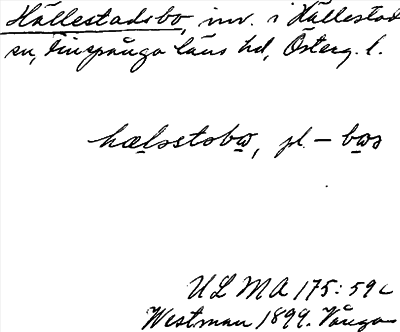 Hällestadsbo, inv. i Hällestad
sn, Finspånga läns hd, Österg. l.
hælsstobɷ, pl. – bɷs
ULMA 175: 59 c
Westman 1899. Vånga